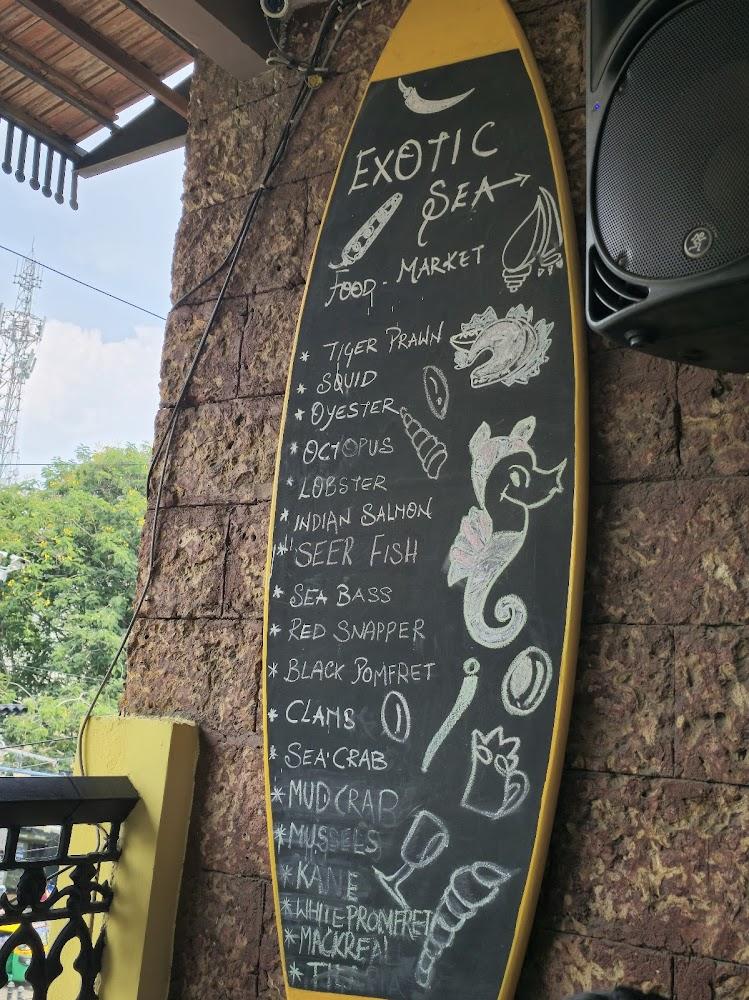 EXOTIC
SEA
FOOD - MARKET
* TIGER PRAWN
* SQUID
* OYESTER
* OCTOPUS
* LOBSTER
* INDIAN SALMON
* SEER FISH
* SEA BASS
* RED SNAPPER
* BLACK POMFRET
* CLAMS
* SEA CRAB
* MUD CRAB
* MUSSELS
* KANE
* WHITE PROMFRET
* MACKREAL